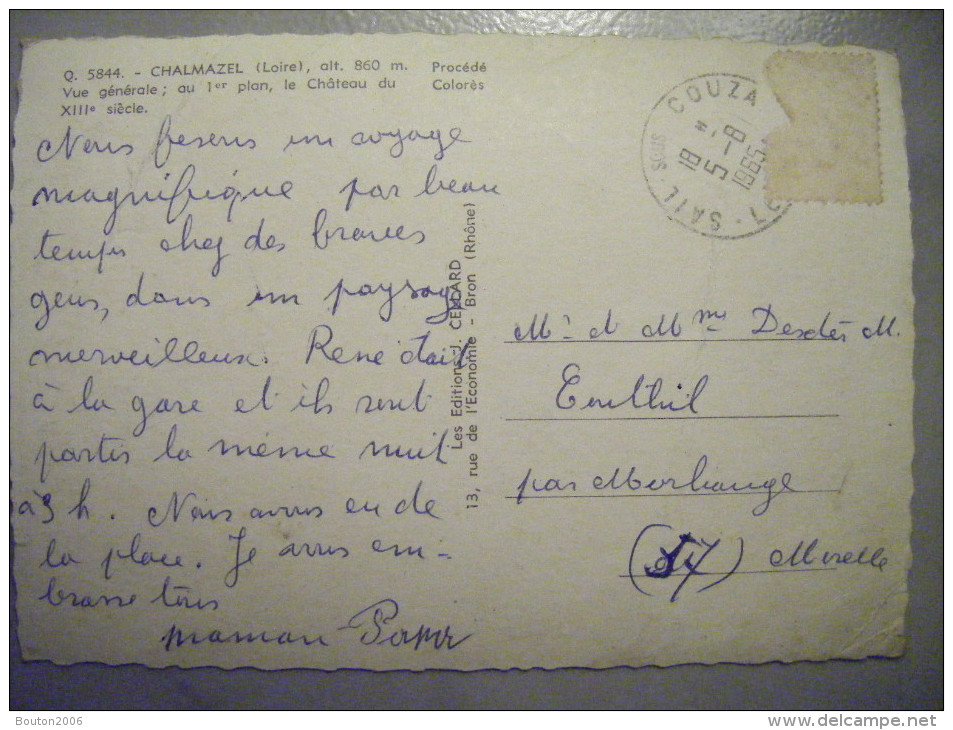 Q. 5844. - CHALMAZEL (Loire), alt. 860 m.
Vue générale ; au 1er plan, le Château du
XIIIe siècle.
Procédé
Colorès
Nous fesons un voyage
magnifique par beau
temps chez des braves
gens, dans un paysage
merveilleux. René était
à la gare et ils sont
partis la même nuit
à 3 h. Nous avons eu de
la place. Je vous em-
brasse tous
maman Papa
Les Editions J. CELLARD
13, rue de l'Economie - Bron (Rhône)
COUZAN
SAIL SOUS
18 H
5 - 8
1965
Mr et Mme M.
Eincthil
par Morhange
(57) Moselle
Bouton2006
www.delcampe.net